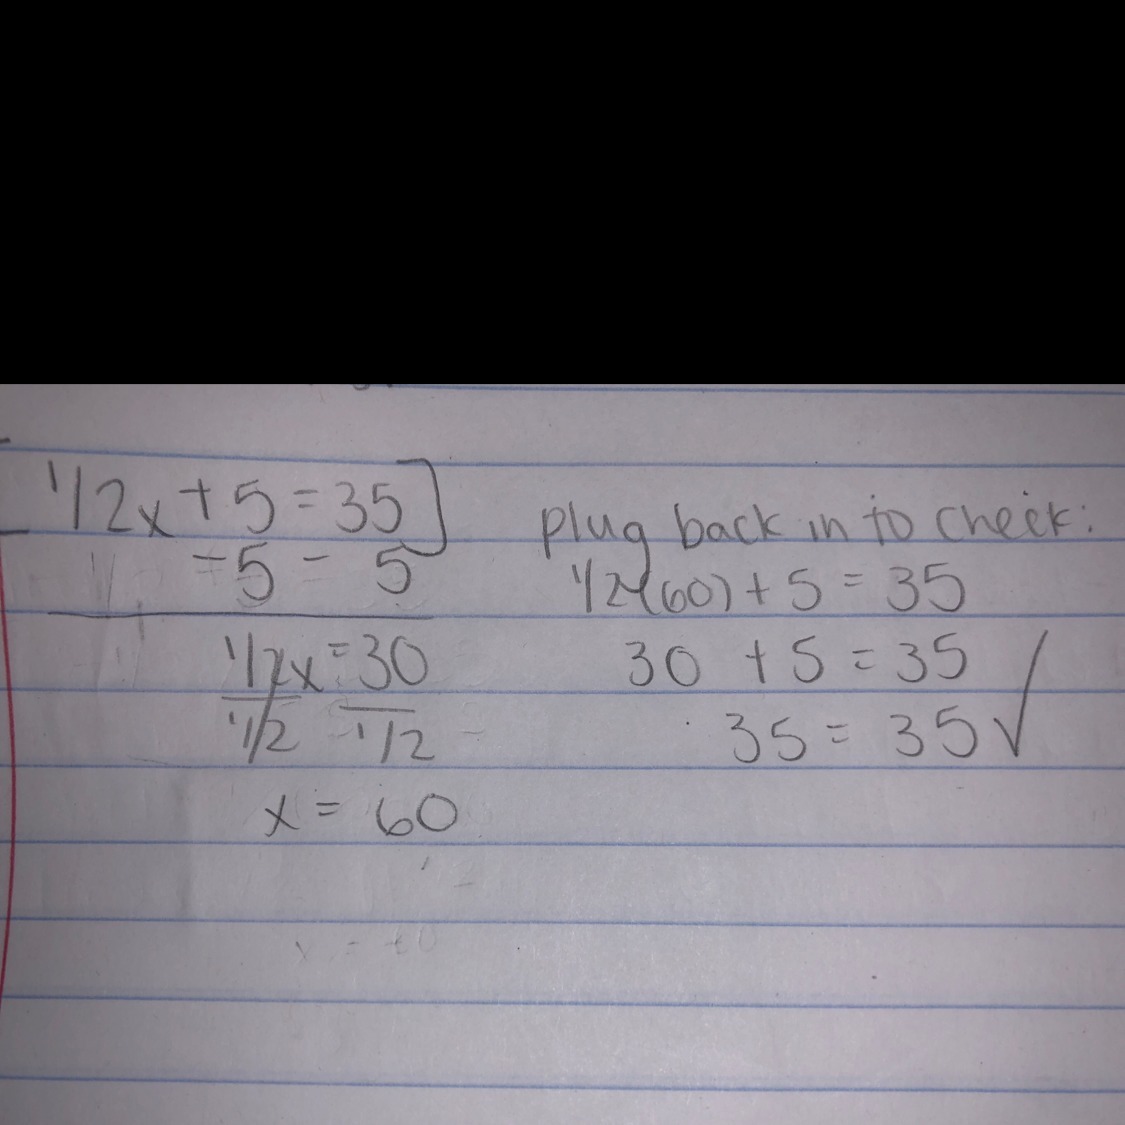 1/2x + 5 = 35]
- 5 = - 5
1/2x = 30
1/2 1/2
x = 60
plug back in to check:
1/2(60) + 5 = 35
30 + 5 = 35
35 = 35 ✓